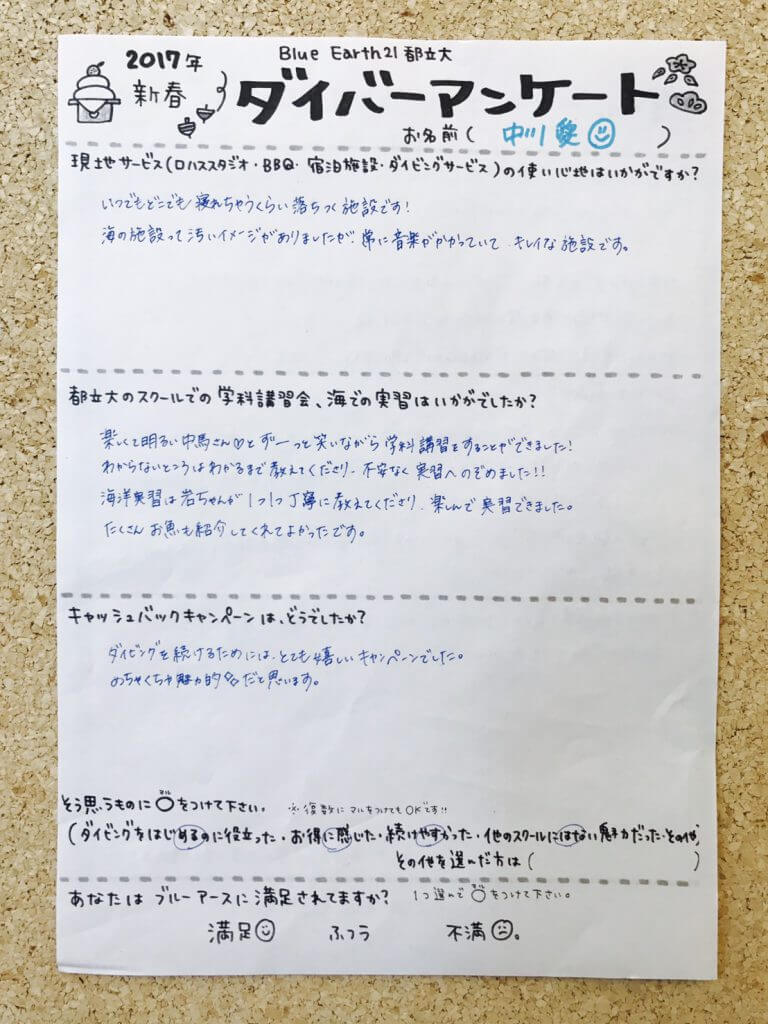 2017年
新春
Blue Earth21 都立大
ダイバーアンケート
お名前( 中川 愛 )
現地サービス(ロハススタジオ・BBQ・宿泊施設・ダイビングサービス)の使い心地はいかがですか?
いつでもどこでも寝れちゃうくらい落ちつく施設です!
海の施設って汚いイメージがありましたが、常に音楽がかかっていて、キレイな施設です。
都立大のスクールでの学科講習会、海での実習はいかがでしたか?
楽しくて明るい中馬さん♡とずーっと笑いながら学科講習をすることができました!
わからないところはわかるまで教えてくださり、不安なく実習へのぞめました!!
海洋実習は岩ちゃんが1つ1つ丁寧に教えてくださり、楽しんで実習できました。
たくさんお魚も紹介してくれてよかったです。
キャッシュバックキャンペーンは、どうでしたか?
ダイビングを続けるためには、とても嬉しいキャンペーンでした。
めちゃくちゃ魅力的だと思います。
そう思うものに○をつけて下さい。 ※復数にマルをつけてもOKです!!
(ダイビングをはじめるのに役立った・お得に感じた・続けやすかった・他のスクールにはない魅力だった・その他)
その他を選んだ方は( )
あなたはブルーアースに満足されてますか? 1つ選んで○をつけて下さい。
満足 ふつう 不満。